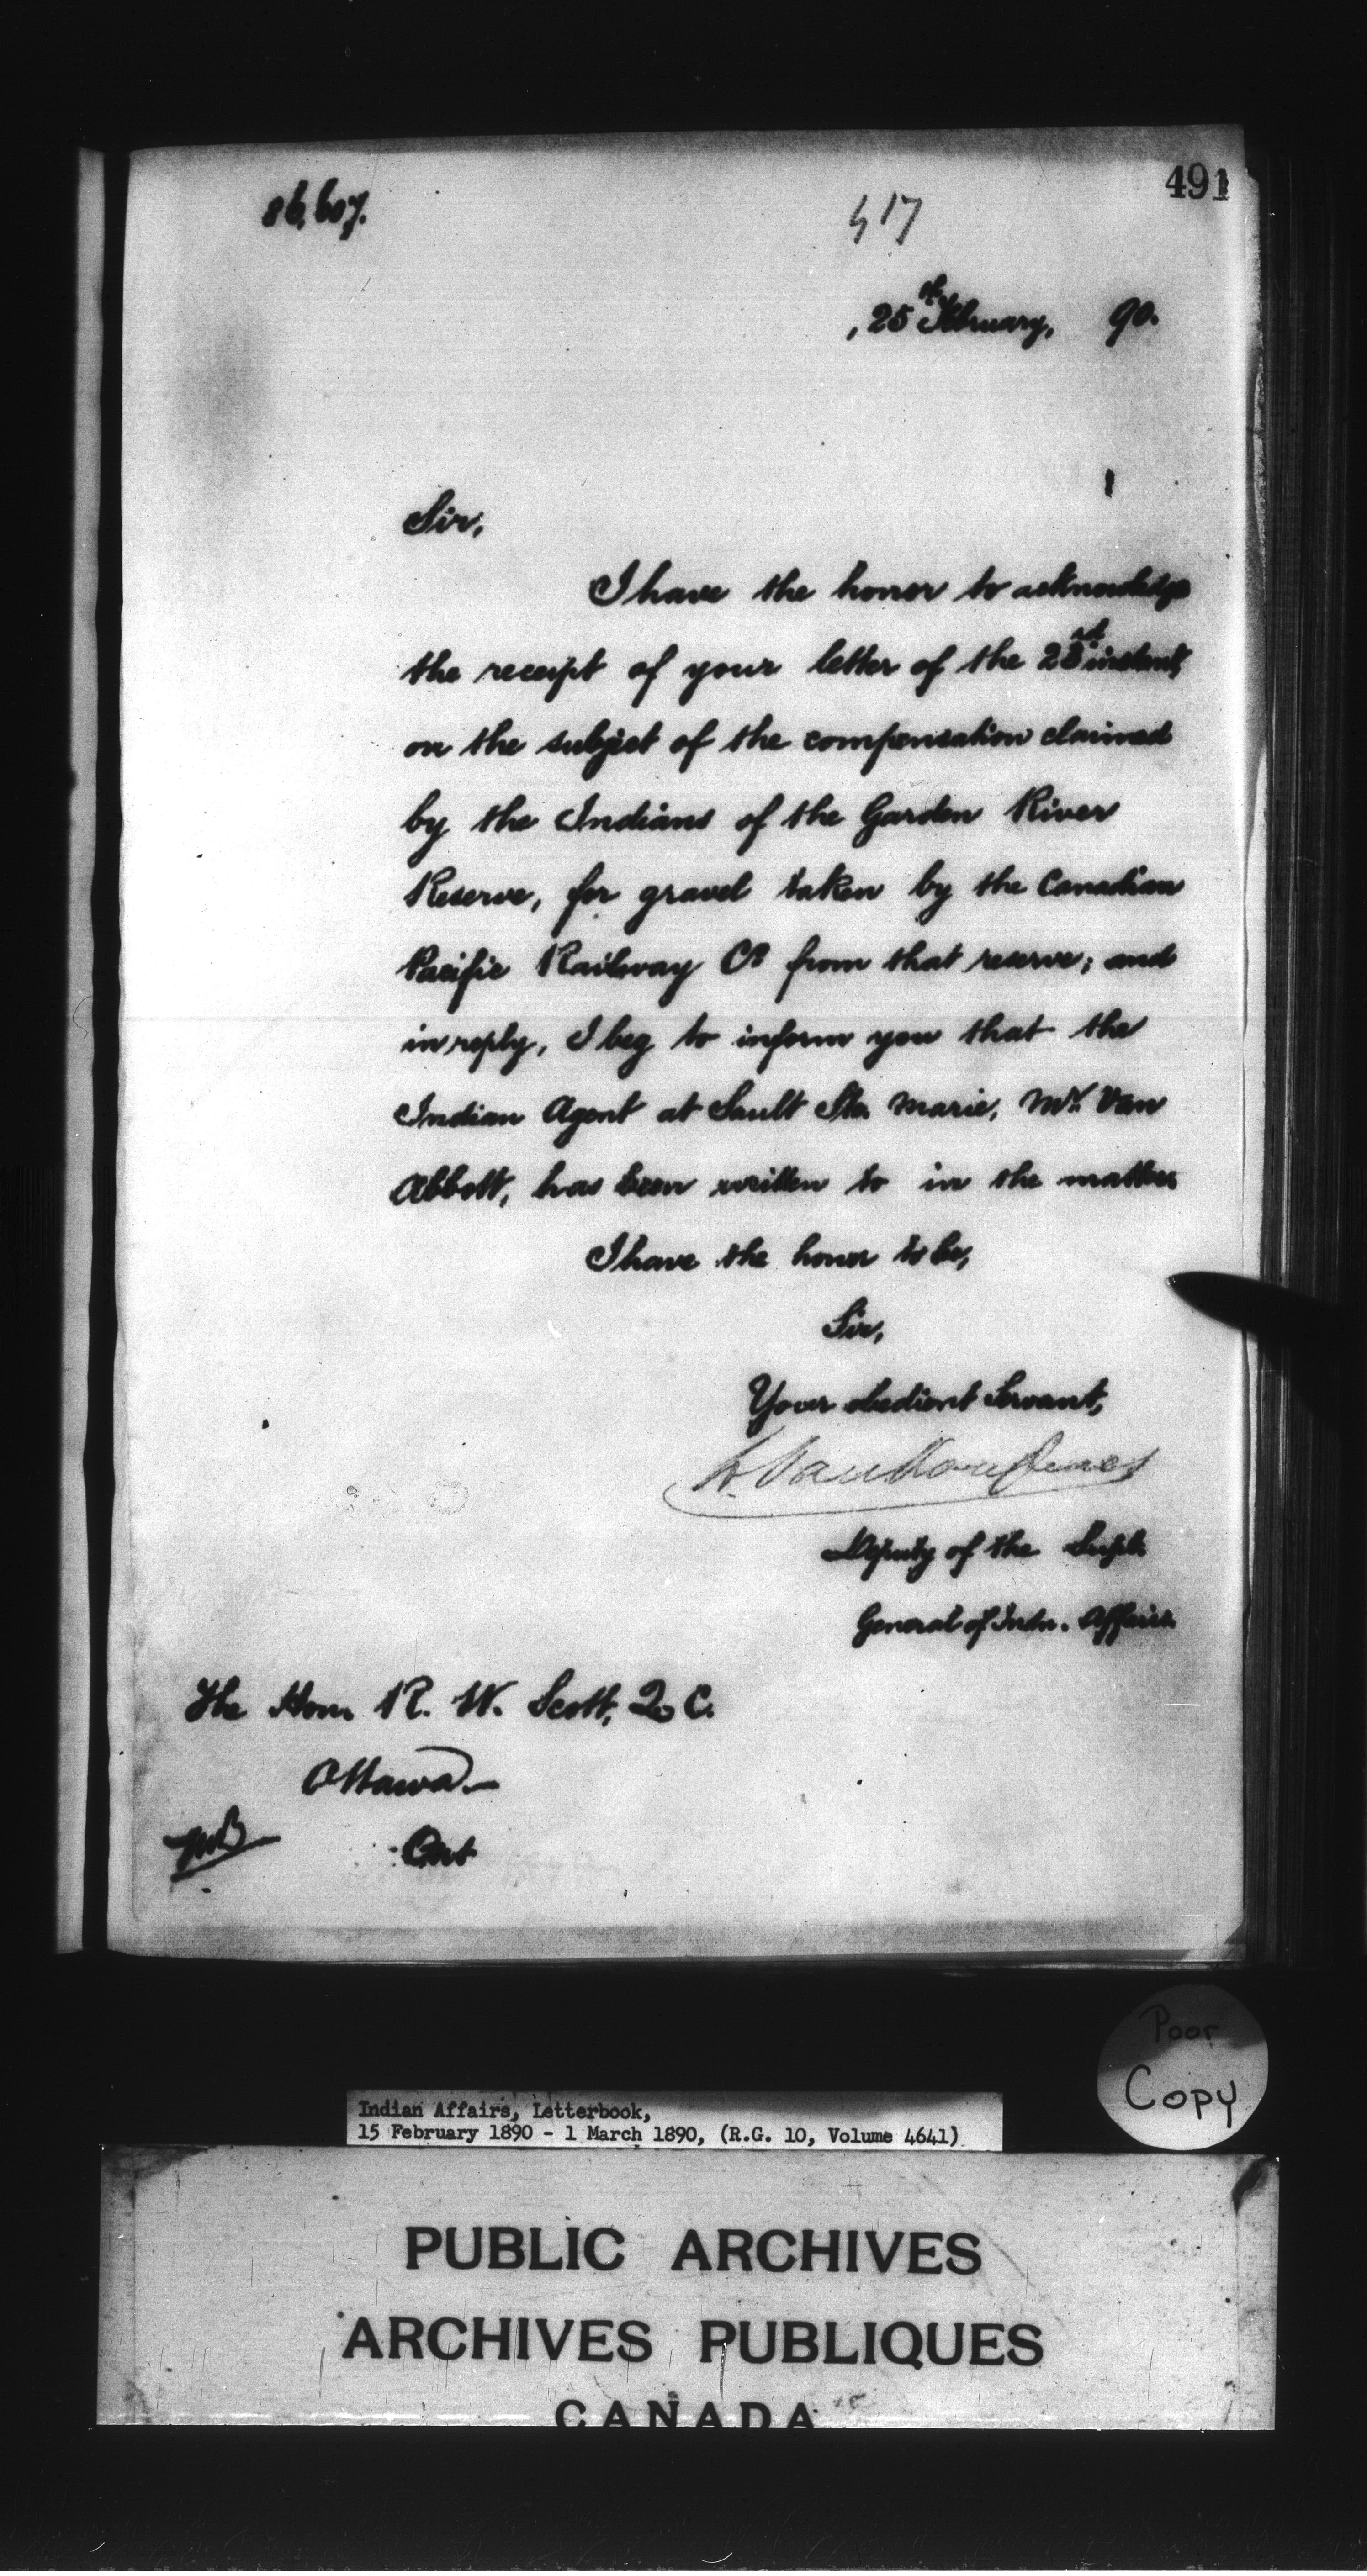 491
86,607.
417
, 25th February, 90.
Sir,
I have the honor to acknowledge
the receipt of your letter of the 23rd instant,
on the subject of the compensation claimed
by the Indians of the Garden River
Reserve, for gravel taken by the Canadian
Pacific Railway Co from that reserve; and
in reply, I beg to inform you that the
Indian Agent at Sault Ste. Marie, Mr. Van
Abbott, has been written to in the matter.
I have the honor to be,
Sir,
Your obedient Servant,
L. Vankoughnet
Deputy of the Supt.
General of Indn. Affairs.
The Hon. R. W. Scott, Q.C.
Ottawa
Ont
Poor
Copy
Indian Affairs, Letterbook,
15 February 1890 - 1 March 1890, (R.G. 10, Volume 4641)
PUBLIC ARCHIVES
ARCHIVES PUBLIQUES
CANADA